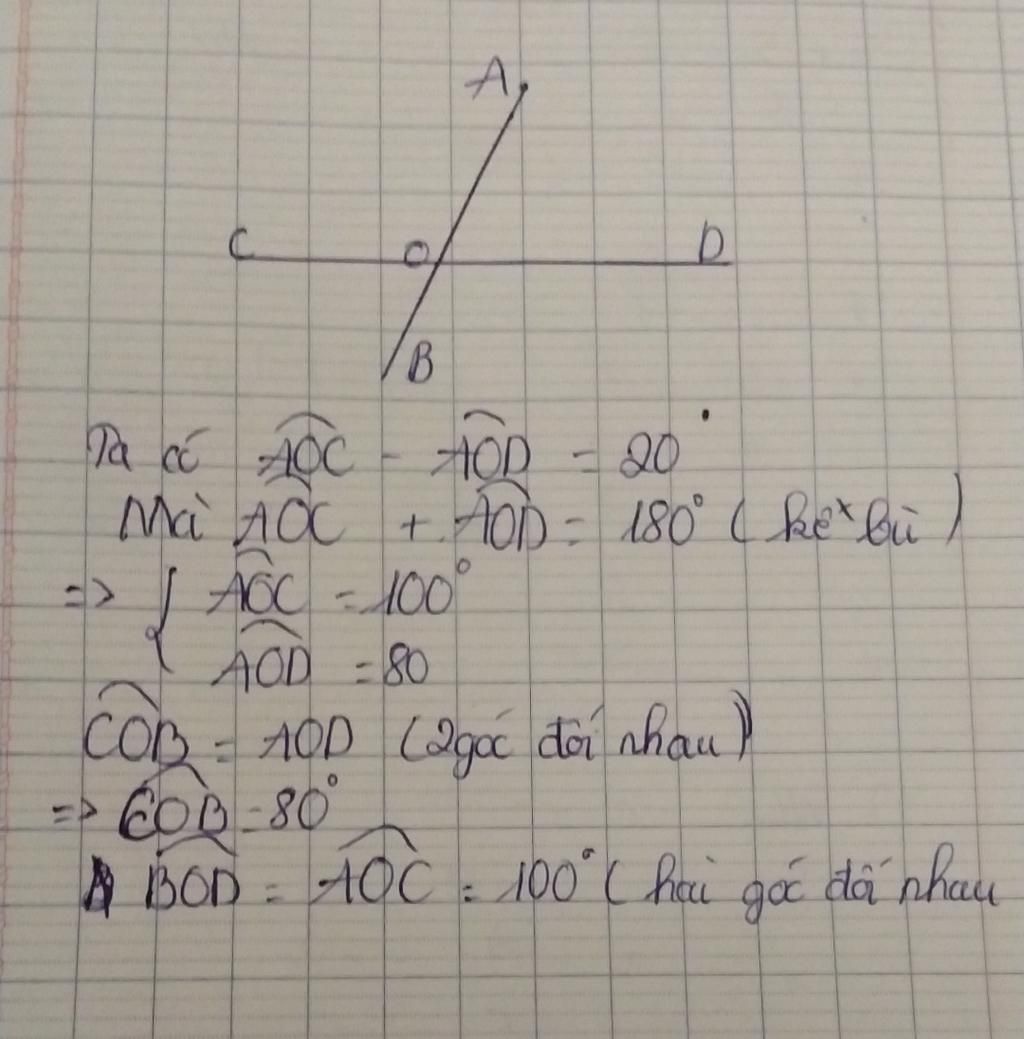 A
C O D
B
Ta có AOC - AOD = 20°
Mà AOC + AOD = 180° (kề bù)
=> { AOC = 100°
AOD = 80
COB = AOD (2góc đối nhau)
=> COB = 80°
BOD = AOC = 100° (hai góc đối nhau